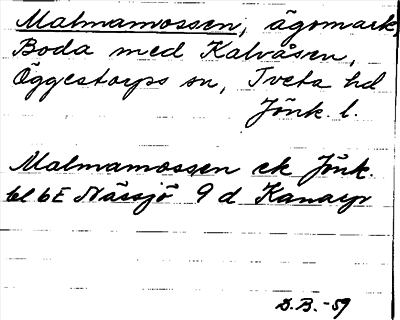 Malmamossen, ägomark,
Boda med Kalvåsen,
Öggestorps sn, Tveta hd
Jönk. l.
Malmamossen ek Jönk.
bl 6E Nässjö 9 d Kanarp
D.B.-59